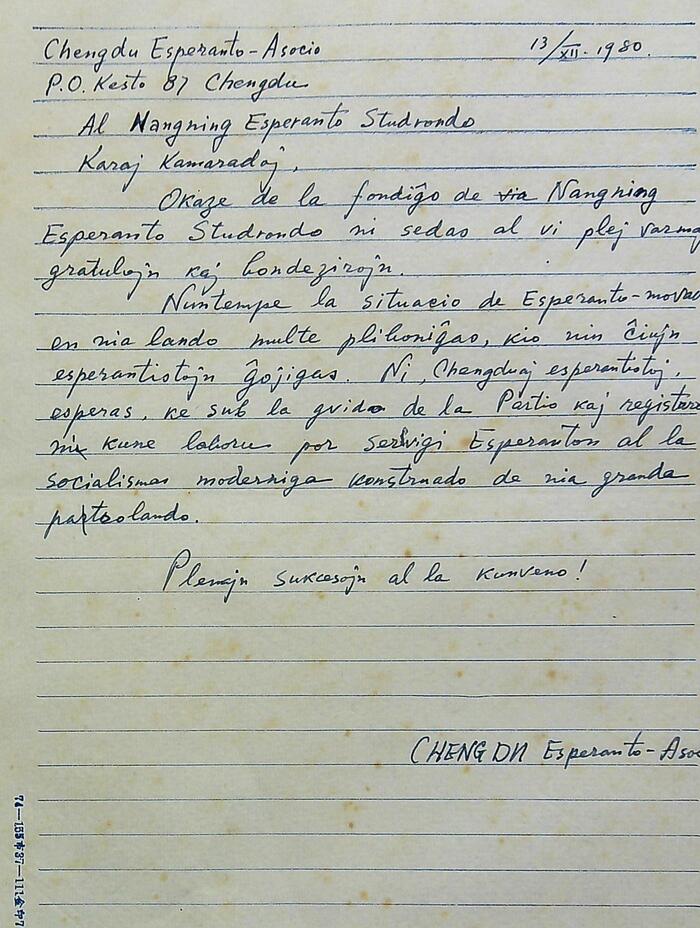 Chengdu Esperanto-Asocio 13/XII. 1980.
P.O. Kesto 87 Chengdu
Al Nangning Esperanto Studrondo
Karaj Kamaradoj,
Okaze de la fondiĝo de via Nangning
Esperanto Studrondo ni sedas al vi plej varma
gratulojn kaj bondezirojn.
Nuntempe la situacio de Esperanto-mova
en nia lando multe pliboniĝas, kio nin ĉiujn
esperantistojn ĝojigas. Ni, Chengduaj esperantistoj,
esperas, ke sub la gvido de la Partio kaj registar
ni kune laboru por servigi Esperanton al la
socialisma moderniga konstruado de nia granda
patrolando.
Plenajn sukcesojn al la kunveno!
CHENGDU Esperanto-Aso